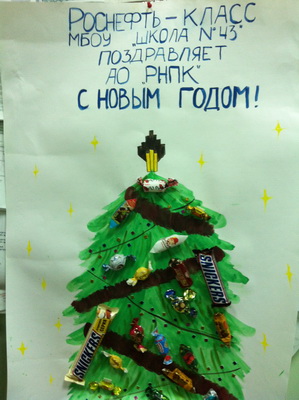 РОСНЕФТЬ – КЛАСС
МБОУ "ШКОЛА №43"
ПОЗДРАВЛЯЕТ
АО "РНПК"
С НОВЫМ ГОДОМ!
SNICKERS
SNICKERS